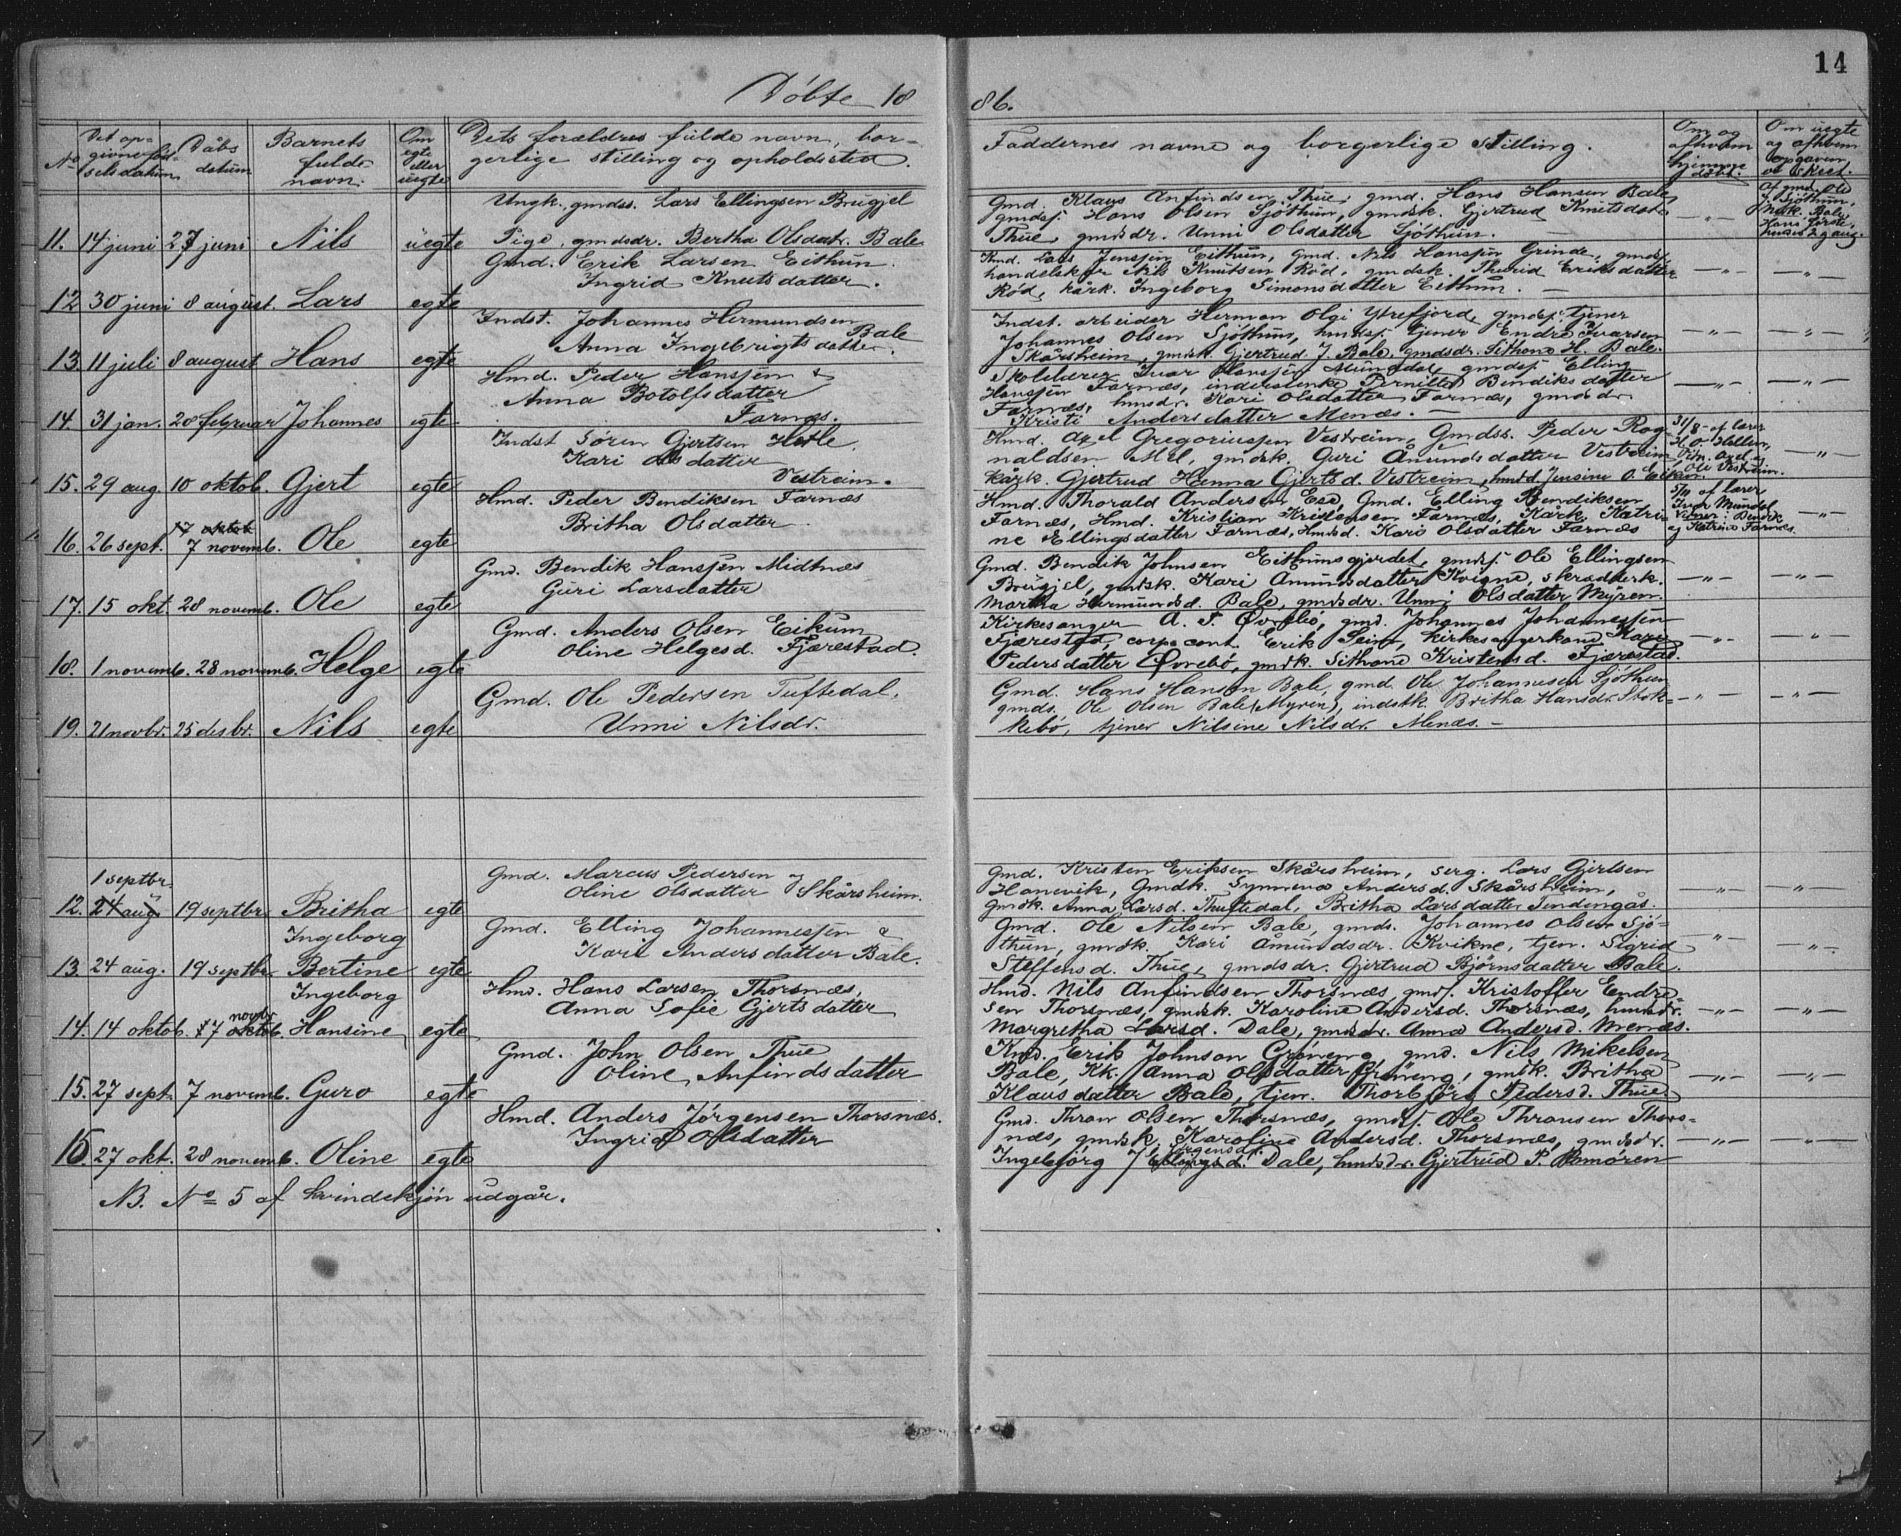 14
Døbte 1886.
No
Det opgivne fødselsdatum
Dåbsdatum
Barnets fulde navn.
Om egte eller uegte
Dets forældres fulde navn, borgerlige stilling og opholdssted.
Faddernes navne og borgerlige stilling.
Om og afhvem hjemmedøbt.
Om uegte og afhvem opgaven er skeet.
11. 14 juni 27 juni Nils uegte
Ungk. gmdss. Lars Ellingsen Brugjel
Pige, gmdsdr. Bertha Olsdatr. Bale
Gmd. Klaus Anfindsen Thue, gmd. Hans Hansen Bale,
gmdss. Hans Olsen Sjøthun, gmdsk. Gjertrud Knutsdatr
Thue, gmdsdr. Unni Olsdatter Sjøthun.
12 30 juni 8 august. Lars egte
Gmd. Erik Larsen Eithun
Ingrid Knutsdatter.
Kmd. Lars Jenssøn Eithun, Gmd. Nils Hanssøn Grinde, gmdss.
handelskar Nils Knutsen Rød, gmdsk. Thurid Eriksdatter
Rød, kårk. Ingeborg Simonsdatter Eithun.
13. 11 juli 8 august Hans egte
Indst. Johannes Hermundsen
Anna Ingebrigtsdatter. Bale
Indst. arbeider Herman Olai Ytrefjord, gmdss. tjener
Johannes Olsen Sjøthun, hmdss. tjener Endre Ivarsen
Skårsheim, gmdsk. Gjertrud J. Bale, gmdsdr. Sithone H. Bale.
14. 31 jan. 28 februar Johannes egte
Hmd. Peder Hanssøn &
Anna Botolfsdatter
Farnæs.
Skolelærer Ivar Hanssøn Mundal, gmdss. Elling
Hanssøn Farnæs, inderstenke Pernille Bendiksdatter
Farnæs, hmsdr. Kari Olsdatter Farnæs, gmdsdr.
Kristi Andersdatter Menæs.
15. 29 aug. 10 oktob. Gjert egte
Indst Søren Gjertsen Hatle
Kari Olsdatter
Vestreim.
Hmd. Axel Gregoriussen Vestreim, Gmdss. Peder Rognaldsen
Mel, gmdsk. Guri Åmundsdatter Vestreim
kårk. Gjertrud Hanna Gjertsd. Vestreim, hmsd. Jensine O. Eikum.
31/8 af lærer
16. 26 sept. 7 novemb. Ole egte
Hmd. Peder Bendiksen Farnæs
Britha Olsdatter
Hmd. Thorald Andersen Ese, Gmd. Elling Bendiksen
Farnæs, Hmd. Kristian Kristensen Farnæs, Kårk. Katrine
Ellingsdatter Farnæs, Hmdsd. Kari Olsdatter Farnæs
af lærer
Ivar Mundal
og Katrine Farnæs.
17. 15 okt. 28 novemb. Ole egte
Gmd. Bendik Hanssøn Midtnæs
Guri Larsdatter
Gmd. Bendik Johnsen Eithunsgjerdet, gmdss. Ole Ellingsen
Brugjel, gmdsk. Kari Amunsdatter Kvigne, skrædderk.
Martha Hermundsd. Bale, gmdsdr. Unni Olsdatter Myren.
18. 1 novemb. 28 novemb. Helge egte
Gmd. Anders Olsen Eikum
Oline Helgesd. Fjærestad.
Kirkesanger A. T. Øvrebø, gmd. Johannes Johannessøn
Fjærestad, corps.cont. Erik Seim, kirkesangerkone Kari
Pedersdatter Øvrebø, gmdk. Sithone Kristensd. Fjærestad.
19. 21 novbr. 25 desbr. Nils egte
Gmd. Ole Pedersen Tuftedal.
Unni Nilsdr.
Gmd. Hans Hansen Bale, gmd. Ole Johannesen Sjøthun
gmds. Ole Olsen Bale (Myren), indstk. Britha Hansdr. Stokkebø,
tjener Nilsine Nilsdr. Menæs.
12. 24 aug 1 septbr. 19 septbr. Britha egte
Gmd. Marcus Pedersen og
Oline Olsdatter Skårsheim.
Gmd. Kristen Eriksen Skårsheim, serg. Lars Gjertsen
Hanevik, Gmdk. Synneva Andersd. Skårsheim,
gmdk. Anna Larsd. Thuftedal, Britha Larsdatter Tendengås.
13. 24 aug. 19 septbr. Ingeborg Bertine egte
Gmd. Elling Johannessøn &
Kari Andersdatter Bale.
Gmd. Ole Nilsen Bale, gmds. Johannes Olsen Sjøthun,
gmdsk. Kari Åmundsdr. Kvikne, tjen. Sigrid
Steffensd. Thue, gmdsdr. Gjertrud Bjørnsdatter Bale.
14. 14 oktob. 7 oktob. novbr Ingeborg Hansine egte
Hmd. Hans Larsen Thorsnæs,
Anna Sofie Gjertsdatter
Hmd. Nils Anfindsen Thorsnæs, gmdss. Kristoffer Endresen
Thorsnæs, gmdsk. Karoline Andersd. Thorsnæs, hmdsdr.
Margretha Larsd. Dale, gmdsdr. Anna Andersd. Menæs.
15. 27 sept. 7 novemb. Guro egte
Gmd. John Olsen Thue
Oline Anfindsdatter
Kmd. Erik Johnson Grøneng, gmd. Nils Mikelsen
Bale, Kk. Anna Olsdatter Grøneng, gmdk. Britha
Klausdatter Bale, tjen. Thorbjørg Pedersd. Thue
16 27 okt. 28 novemb. Oline egte
Hmd. Anders Jørgensen Thorsnæs.
Ingrid Olsdatter
Gmd. Thron Olsen Thorsnæs, gmdss. Ole Thronsen Thorsnæs,
gmdsk. Karoline Andersd. Thorsnæs, gmdsdr.
Ingebjørg Jørgensdr. Dale, hmdsdr. Gjertrud P. Rømøren
NB. No 5 af kvindekjøn udgår.